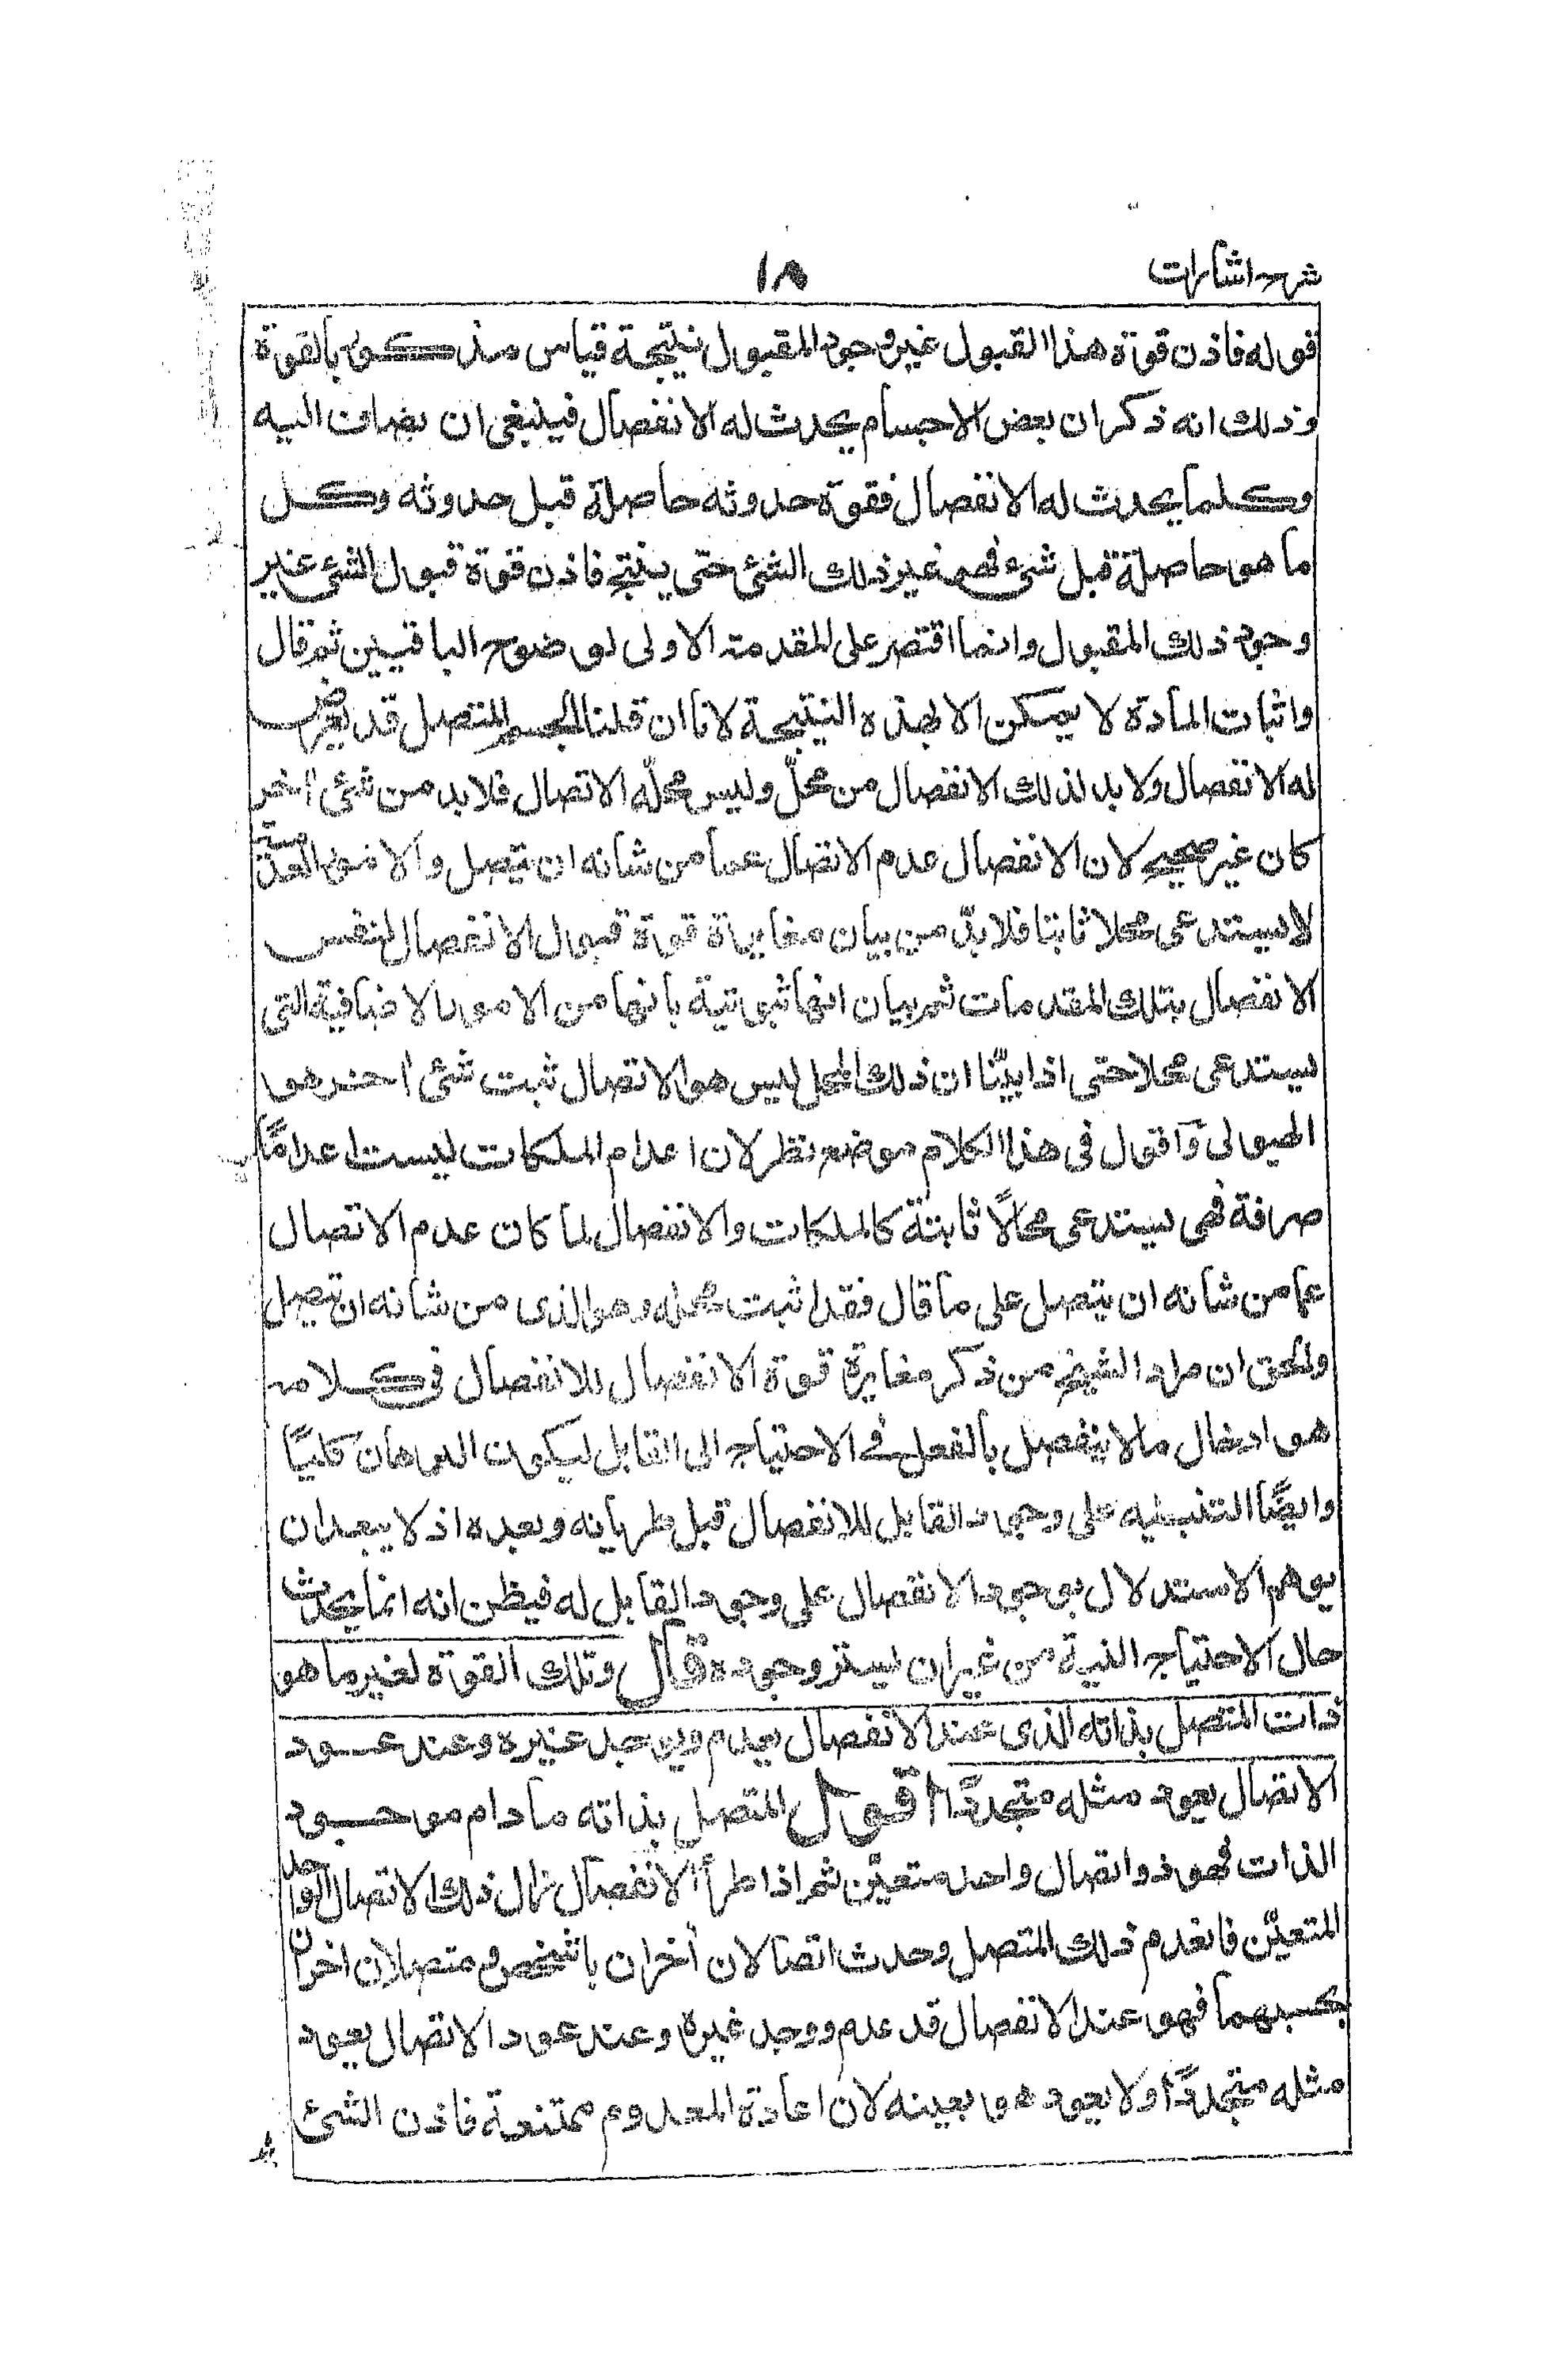 شرح اشارات
١٨
قوله فاذن قوة هذا القبول غير وجود المقبول نتيجة قياس مذكور بالقوة
وذلك انه ذكر ان بعض الاجسام يحدث له الانفصال فينبغي ان يضاف اليه
وكلما يحدث له الانفصال فقوة حدوثه حاصلة قبل حدوثه وكل
ما هو حاصلة قبل شئ فهو غير ذلك الشئ حتى ينتج فاذن قوة قبول الشئ غير
وجود ذلك المقبول وانما اقتصر على المقدمة الاولى لوضوح الباقيين ثم قال
واثبات المادة لا يمكن الا بهذه النتيجة لانا ان قلنا الجسم المتصل قد يعرض
له الانفصال ولا بد لذلك الانفصال من محلّ وليس محلّه الاتصال فلابد من شئ اخر
كان غير صحيح لان الانفصال عدم الاتصال عما من شانه ان يتصل والامور العدمية
لا يستدعى محلا ثابتا فلابدّ من بيان مغايرة قوة قبول الانفصال لنفس
الانفصال بتلك المقدمات ثم بيان انها ثبوتية بانها من الامور الاضافية التى
يستدعى محلا حتى اذا بيّنا ان ذلك المحل ليس هو الاتصال ثبت شئ اخر هو
الهيولى واقول فى هذا الكلام موضع نظر لان اعدام الملكات ليست اعدامًا
صرافة فهى يستدعى محالًا ثابتة كالملكات والانفصال لما كان عدم الاتصال
عما من شانه ان يتصل على ما قال فقد اثبت محله وهو الذى من شانه ان يتصل
والحق ان مراد الشيخ من ذكر مغايرة قوة الانفصال للانفصال فى كلامه
هو ادخال ما لا ينفصل بالفعل فى الاحتياج الى القابل ليكون البرهان كليًا
وايضًا التنبيه على وجود القابل للانفصال قبل طريانه وبعده اذ لا يبعد ان
يوهم الاستدلال بوجود الانفصال على وجود القابل له فيظن انه انما يحدث
حال الاحتياج اليه من غير ان يستمر وجوده قال وتلك القوة لغير ما هو
ذات المتصل بذاته الذى عند الانفصال يعدم ويوجد غيره وعند عود
الاتصال يعود مثله متجددًا اقول المتصل بذاته ما دام موجود
الذات فهو ذو اتصال واحد متعيّن ثم اذا طرأ الانفصال زال ذلك الاتصال الواحد
المتعيّن فانعدم ذلك المتصل وحدث اتصالان أخران بالشخص ومتصلان اخران
بحسبهما فهو عند الانفصال قد عدم ووجد غيره وعند عود الاتصال يعود
مثله متجددًا ولا يعود هو بعينه لان اعادة المعدوم ممتنعة فاذن الشئ